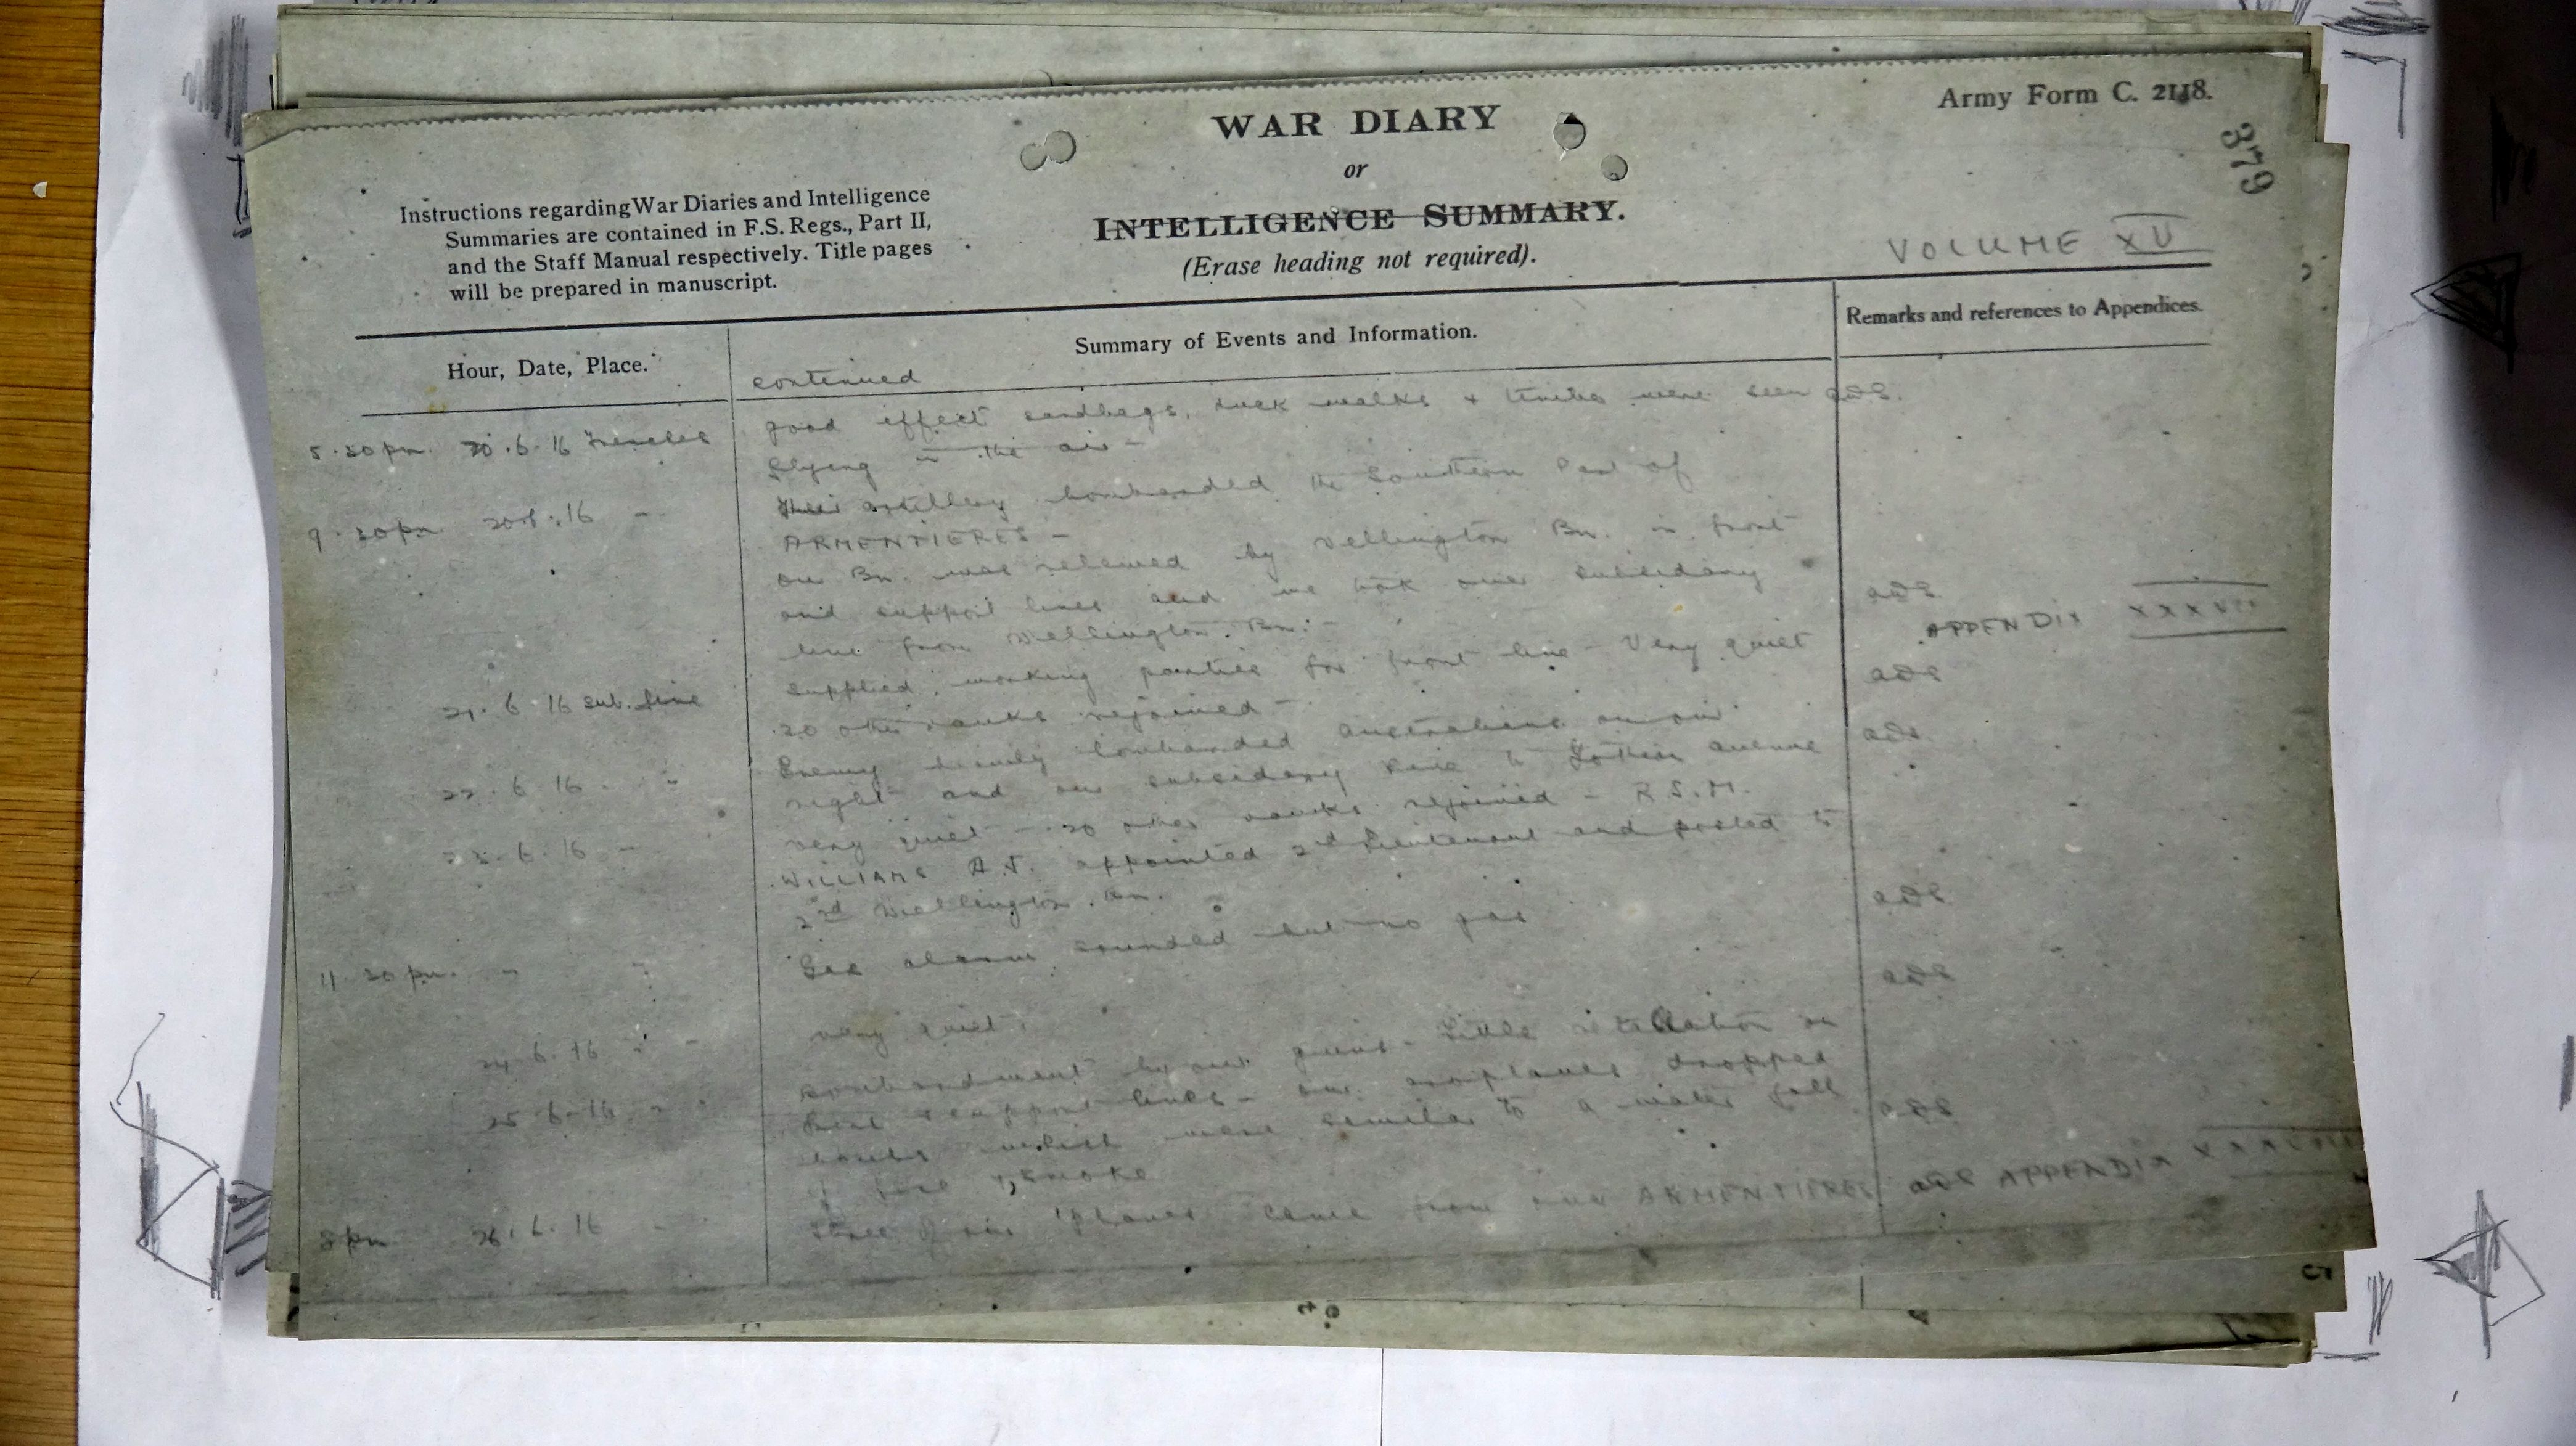 Army Form C. 2118.
379
WAR DIARY
or
INTELLIGENCE SUMMARY.
(Erase heading not required).
Instructions regarding War Diaries and Intelligence
Summaries are contained in F.S. Regs., Part II,
and the Staff Manual respectively. Title pages
will be prepared in manuscript.
VOLUME XV
Hour, Date, Place.
Summary of Events and Information.
Remarks and references to Appendices.
continued
5.30pm. 20.6.16 Trenches good effect sandbags, duck walks + timber were seen ads.
flying in the air -
9.30pm 20.6.16 - artillery bombarded the Southern Part of
ARMENTIERES -
our Bn. was relieved by Wellington Bn. in front
and support lines and we took over subsidiary ads
line from Wellington Bn. - APPENDIX XXXVII
21.6.16 Sub. Line supplied working parties for front line - Very quiet ads
20 other ranks rejoined -
22.6.16 - Enemy heavily bombarded Australians on our ads
right and our subsidiary line to avenue
23.6.16 - very quiet - 20 other ranks rejoined - R.S.M.
WILLIAMS A.J. appointed 2nd Lieutenant and posted to
2nd Wellington Bn. ads
11.30pm. " " Gas alarm sounded but no gas ads
24.6.16 " - very quiet.
25.6.16 " " bombardment by our guns - Little retaliation on
support lines - our aeroplanes dropped
bombs which were similar to a water fall ads
of fire + smoke
8pm 26.6.16 - Three of our 'planes came from over ARMENTIERES ads APPENDIX